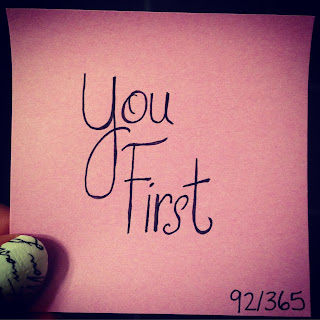 You
First
92/365